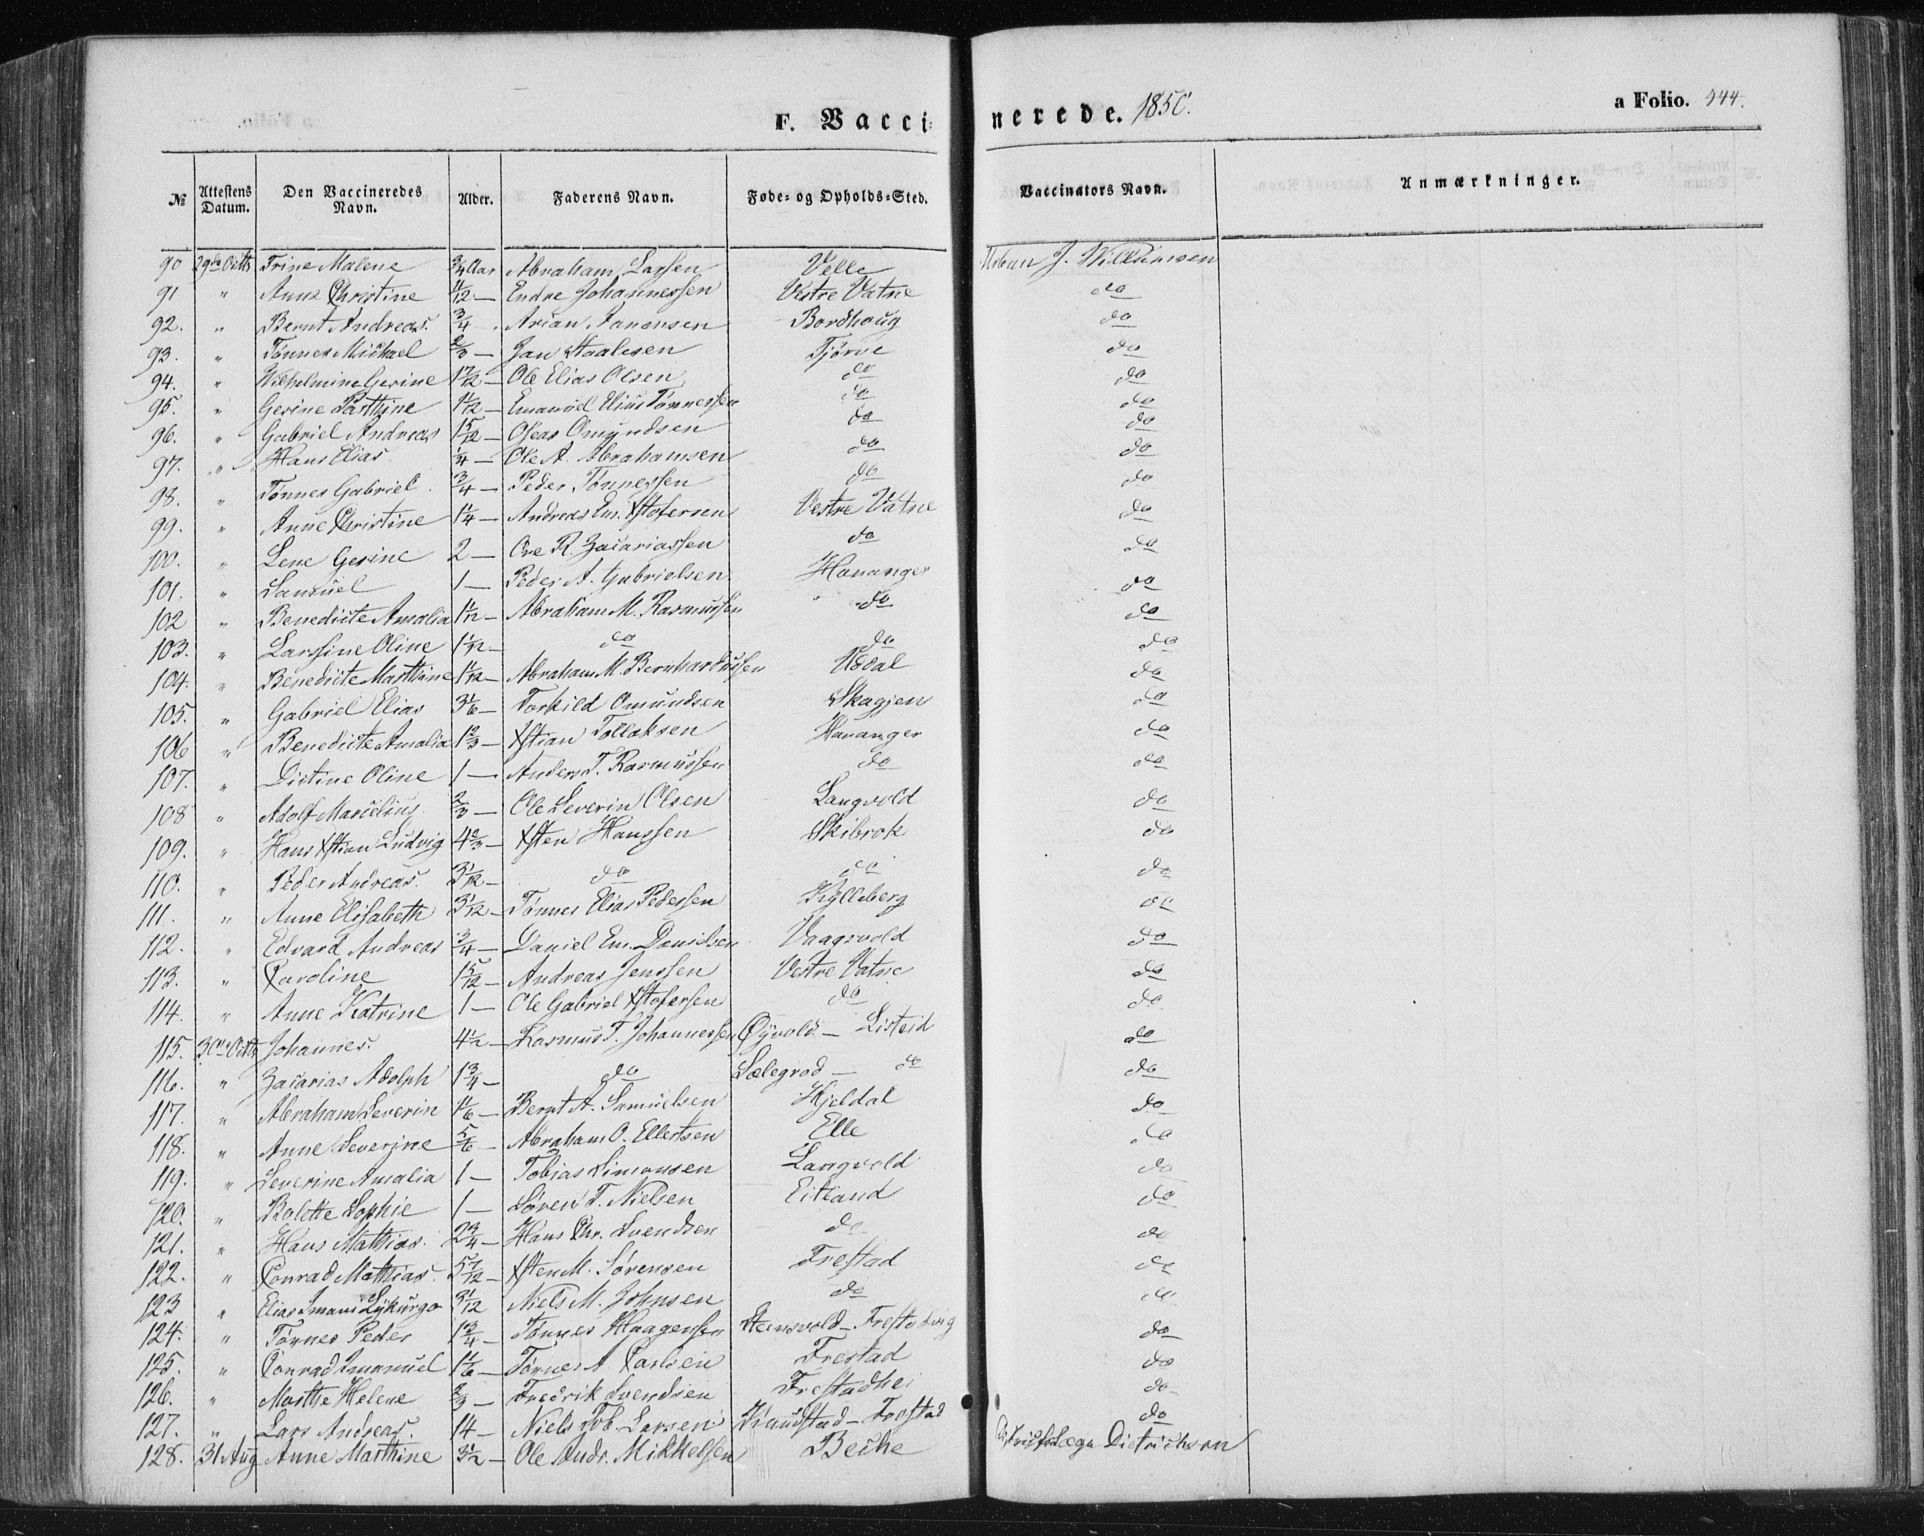 F. Vaccinerede. 1850.
a Folio. 444.
№ Attestens Datum. Den Vaccineredes Navn. Alder. Faderens Navn. Føde- og Opholds-Sted. Vaccinators Navn. Anmærkninger.
90 29de Octb Trine Malene 3/4 Aar Abraham Larsen Velle J. Willumsen
91 " Anne Christine 4/12 — Endre Johannessen Vestre Vatne do
92. " Bernt Andreas. 3/4 — Arian Aanensen Bordhaug do
93. " Tønnes Michael 2/3 — Jan Staalesen Tjørve do
94. " Wilhelmine Gerine 1 7/12 — Ole Elias Olsen do do
95. " Gerine Parthine 1 1/12 — Emanuel Elias Tønnessen do do
96. " Gabriel Andreas 1 5/12 — Oseas Omundsen do do
97. " Hans Elias 1/4 — Ole A. Abrahamsen do do
98. " Tønnes Gabriel 3/4 — Peder Tønnessen do do
99. " Anne Christine 1 1/4 — Andreas Em. Xstofersen Vestre Vatne do
100. " Lene Gerine 2 — Ore R. Zacariassen do do
101. " Samuel 1 — Peder A. Gabrielsen Hananger do
102 " Benedicte Amalia 1 1/12 — Abraham M. Rasmussen do do
103. " Larssine Oline 1 1/12 — do do do
104. " Benedicte Marthine 1 1/12 — Abraham M. Bernhardussen Udal do
105. " Gabriel Elias 3 1/6 — Torkild Omundsen Skagjen do
106 " Benedicte Amalia 1 2/3 — Xstian Tollaksen Hananger do
107. " Distine Oline 1 — Anders T. Rasmussen do do
108 " Adolf Marcelius 2/3 — Ole Severin Olsen Langvold do
109. " Hans Xstian Ludvig 4 2/3 — Xsten Hanssen Skibrok do
110. " Peder Andreas. 3 1/12 — do do do
111. " Anne Elisabeth 3 1/12 — Tønnes Elias Pedersen Hylleberg do
112. " Edvard Andreas 3/4 — Daniel Em. Danielsen Vaagsvold do
113. " Caroline 1 5/12 — Andreas Jenssen Vestre Vatne do
114. " Anne Katrine 1 — Ole Gabriel Xstofersen do do
115. 30te Octb Johannes. 4 1/2 — Rasmus T. Johannessen Øyvold — Listeid do
116. " Zacarias Adolph 1 3/4 — do Sælegrod — do do
117. " Abraham Severin 1 1/6 — Bernt A. Samuelsen Kjeldal do
118. " Anne Severine 5/6 — Abraham O. Ellertsen Elle do
119. " Severine Amalia 1 — Tobias Simonsen Langvold do
120. " Bolette Sophie 1 — Søren T. Nielsen Eitland do
121. " Hans Mathias. 2 3/4 — Hans Chr. Svendsen do do
122. " Conrad Mathias. 5 7/12 — Xsten M. Sørensen Frestad do
123 " Elias Imanuel Lykurgo 3 1/12 Niels M. Johnsen do do
124. " Tønnes Peder 1 3/4 — Tønnes Haagensen Stensvold — Frestadvig do
125. " Conrad Imanuel 1 1/6 — Tønnes A. Carlsen Frestad do
126. " Marthe Helene 2/3 — Fredrik Svendsen Frestadhei do
127. " Lars Andreas. 14 — Niels Tob. Larsen — Frestad do
128. 31 Aug Anne Marthine 3 1/2 — Ole Andr. Mikkelsen Beche Districtslæge Dietrichson